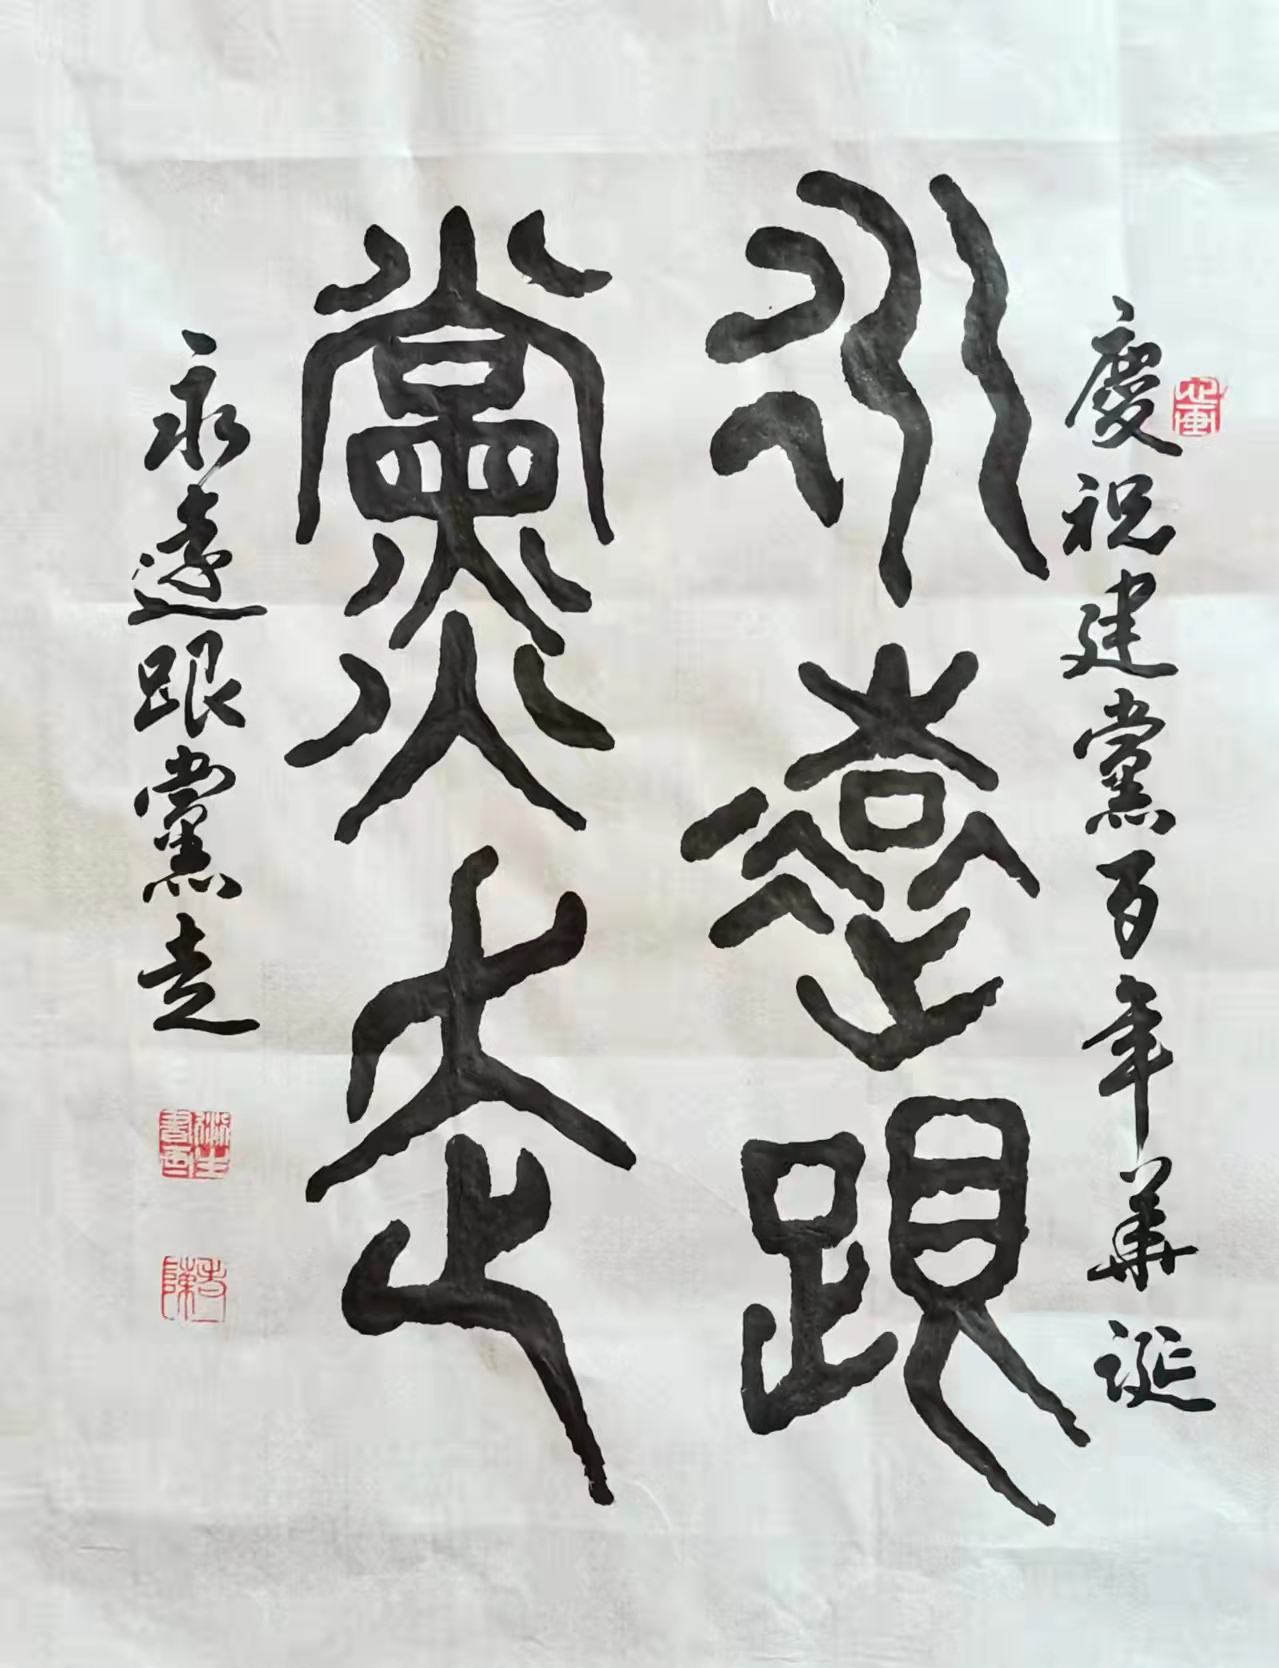 慶祝建黨百年華誕
永遠跟
黨走
永遠跟黨走